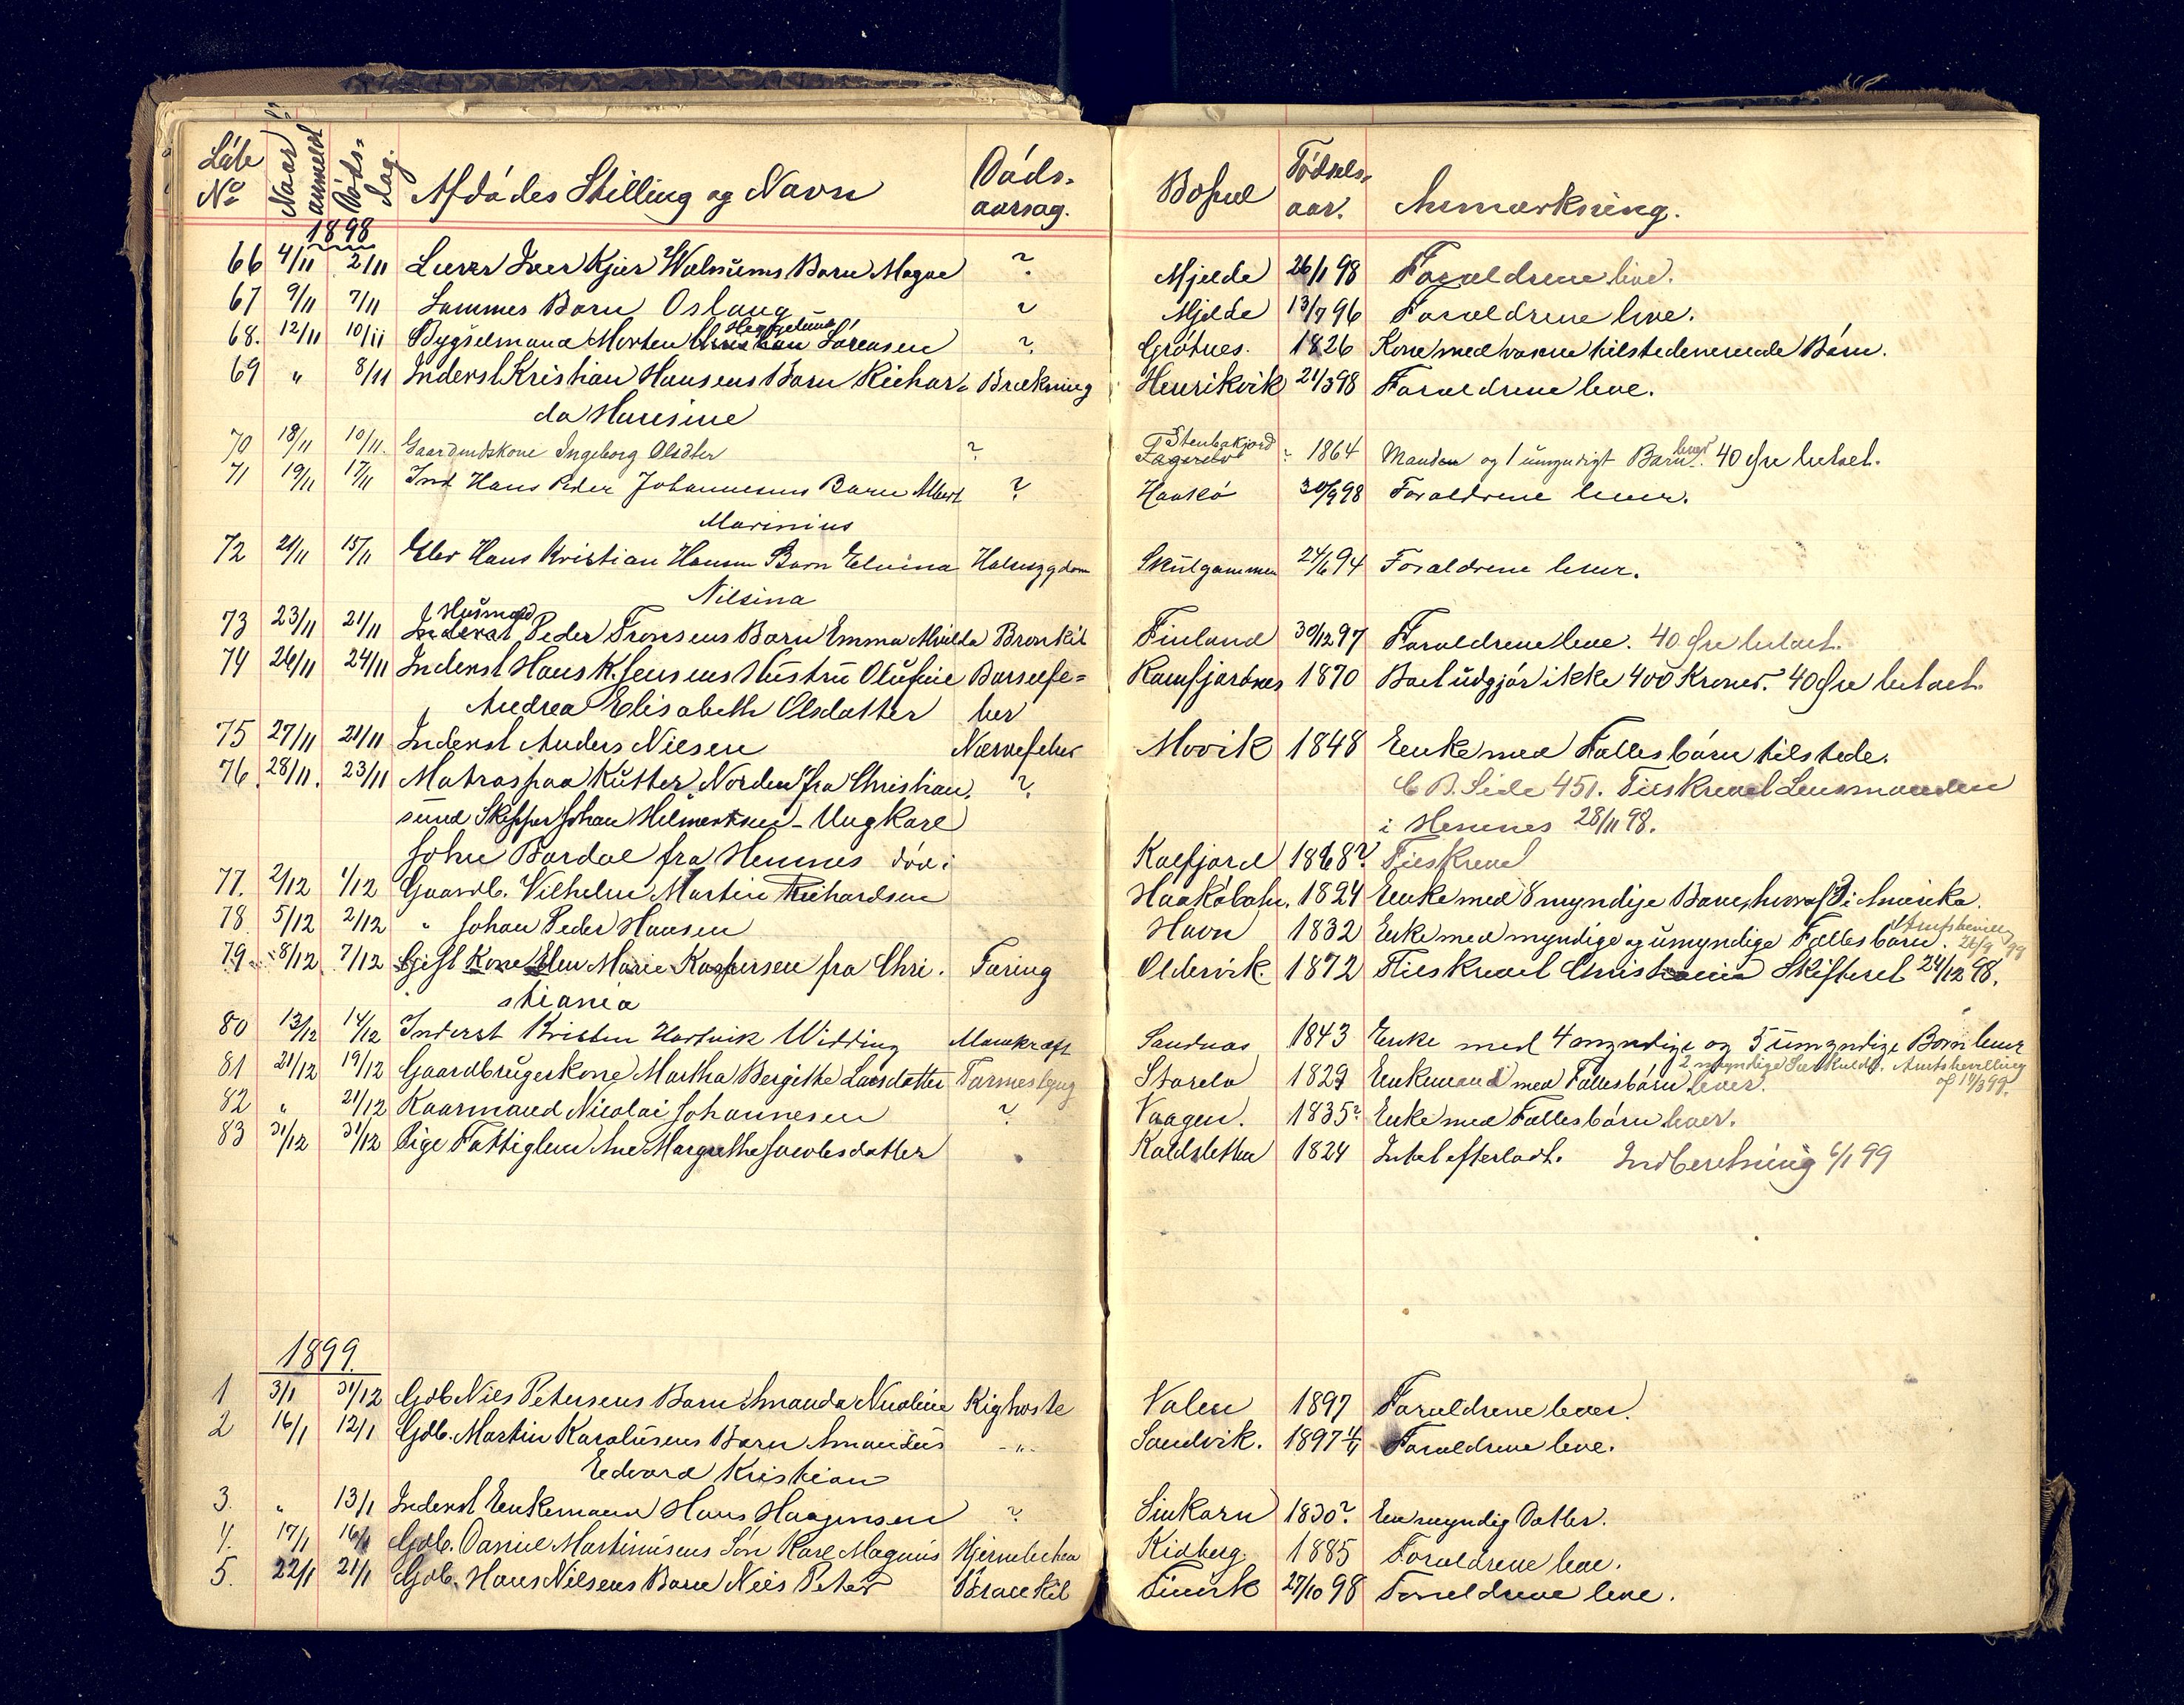 Löbe No Naar anmeldt Døds-dag. Afdødes Stilling og Navn Døds-aarsag. Bopæl Fødsels-aar. Anmærkning.
1898
66 4/11 2/11 Lærer Iver Kjær Wælnums Barn Magne ? Mjelde 26/1 98 Forældrene leve.
67 9/11 7/11 Sammes Barn Oslaug ? Mjelde 13/7 96 Forældrene leve.
68. 12/11 10/11 Bygselmand Morten Heggelund Sørensen ? Grøtnes. 1826 Kone med voxne tilstedeværende Børn.
69 " 8/11 Inderst Kristian Hansens Barn Richar- Brækning Henrikvik 21/3 98 Forældrene leve.
da Hansine
70 18/11 10/11. Gaardmdskone Ingeborg Olsdtr ? Stenbakjord 1864 Manden og 1 umyndigt Barn lever. 40 Øre betalt.
71 19/11 17/11 Ind Hans Peder Johannesens Barn Albert ? Haakø 30/9 98 Forældrene lever.
Marinius
72 21/11 15/11 Elev Hans Kristian Hansen Barn Elvina Halssygdom Skulgammen 24/6 94 Forældrene lever.
Nilsina
73 23/11 21/11 Husmand Peder Fronsens Barn Emma Bronkit Finland 30/12 97 Forældrene leve. 40 Øre betalt.
74 26/11 24/11 Inderst Hans K. Jensens Hustru Olufine Barselfe- Ramfjordnes 1870 Boet udgjør ikke 400 Kroner. 40 Øre betalt.
Andrea Elisabeth Olsdatter ber
75 27/11 21/11 Inderst Anders Nilsen Nervefeber Movik 1848 Enke med Fællesbørn tilstede.
76. 28/11. 23/11 Matros paa Kutter "Norden" fra Christian. ? C B. Side 451. Tilskrevet Lensmanden
sund Skipper Johan Hilmertsen - Ungkarl i Hemnes 28/11 98.
John Bardal fra Hemnes død i Kalfjord 1868? Tilskrevet
77. 2/12 1/12 Gaardb. Vilhelm Martin Richardsen Haakøbotn. 1824 Enke med 8 myndige Børn, hvoraf i Amerika.
78 5/12 2/12 " Johan Peder Hansen Havn 1832 Enke med myndige og umyndige Fællesbørn. Amtsbevilling 26/9 99
79 8/12 7/12 Gift Kone Elen Marie Kaspersen fra Chri. Tæring Oldervik. 1872 Tilskrevet Christiania Skifteret 24/12 98.
stiania
80 13/12 14/12 Inderst Kristen Hartvik Widding Mavekræft Sandnæs 1843 Enke med 4 myndige og 5 umyndige Børn lever
81 21/12 19/12 Gaardbrugerkone Martha Bergithe Larsdatter Tarmeslyng Storelv 1829 Enkemand med Fællesbørn lever. 2 myndige Særkuldb. Amtsbevilling
82 " 21/12 Kaarmand Nicolai Johannesen ? Vaagen. 1835? Enke med Fællesbørn lever.
83 31/12 31/12 Pige Fattiglem Ane Margrethe Jacobsdatter Kaldsletten 1824 Intet efterladt. Indberetning 6/1 99
1899.
1 3/1 31/12 Gdb Nils Petersens Barn Amanda Nicoline Kighoste Valen 1897 Forældrene lever.
2 16/1 12/1 Gdb. Martin Karolusens Barn Amandus - " - Sandvik. 1897 Forældrene leve.
Edvard Kristian
3. " 13/1 Inderst Enkemand Hans Haagensen ? Sinkarn 1830? En myndig Datter.
4. 17/1 16/1 Gdb. Daniel Martinusens Søn Karl Magnus Hjernebetæn Kidberg. 1885 Forældrene leve.
5. 22/1 21/1 Gdb. Hans Nilsens Barn Nils Peter Bronkit 27/10 98 Forældrene leve.